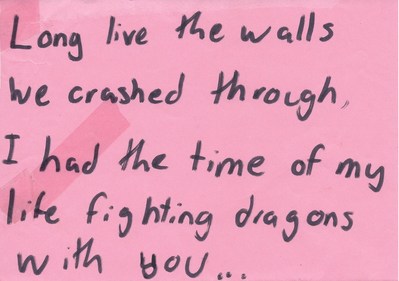 Long live the walls
We crashed through,
I had the time of my
life fighting dragons
with you...